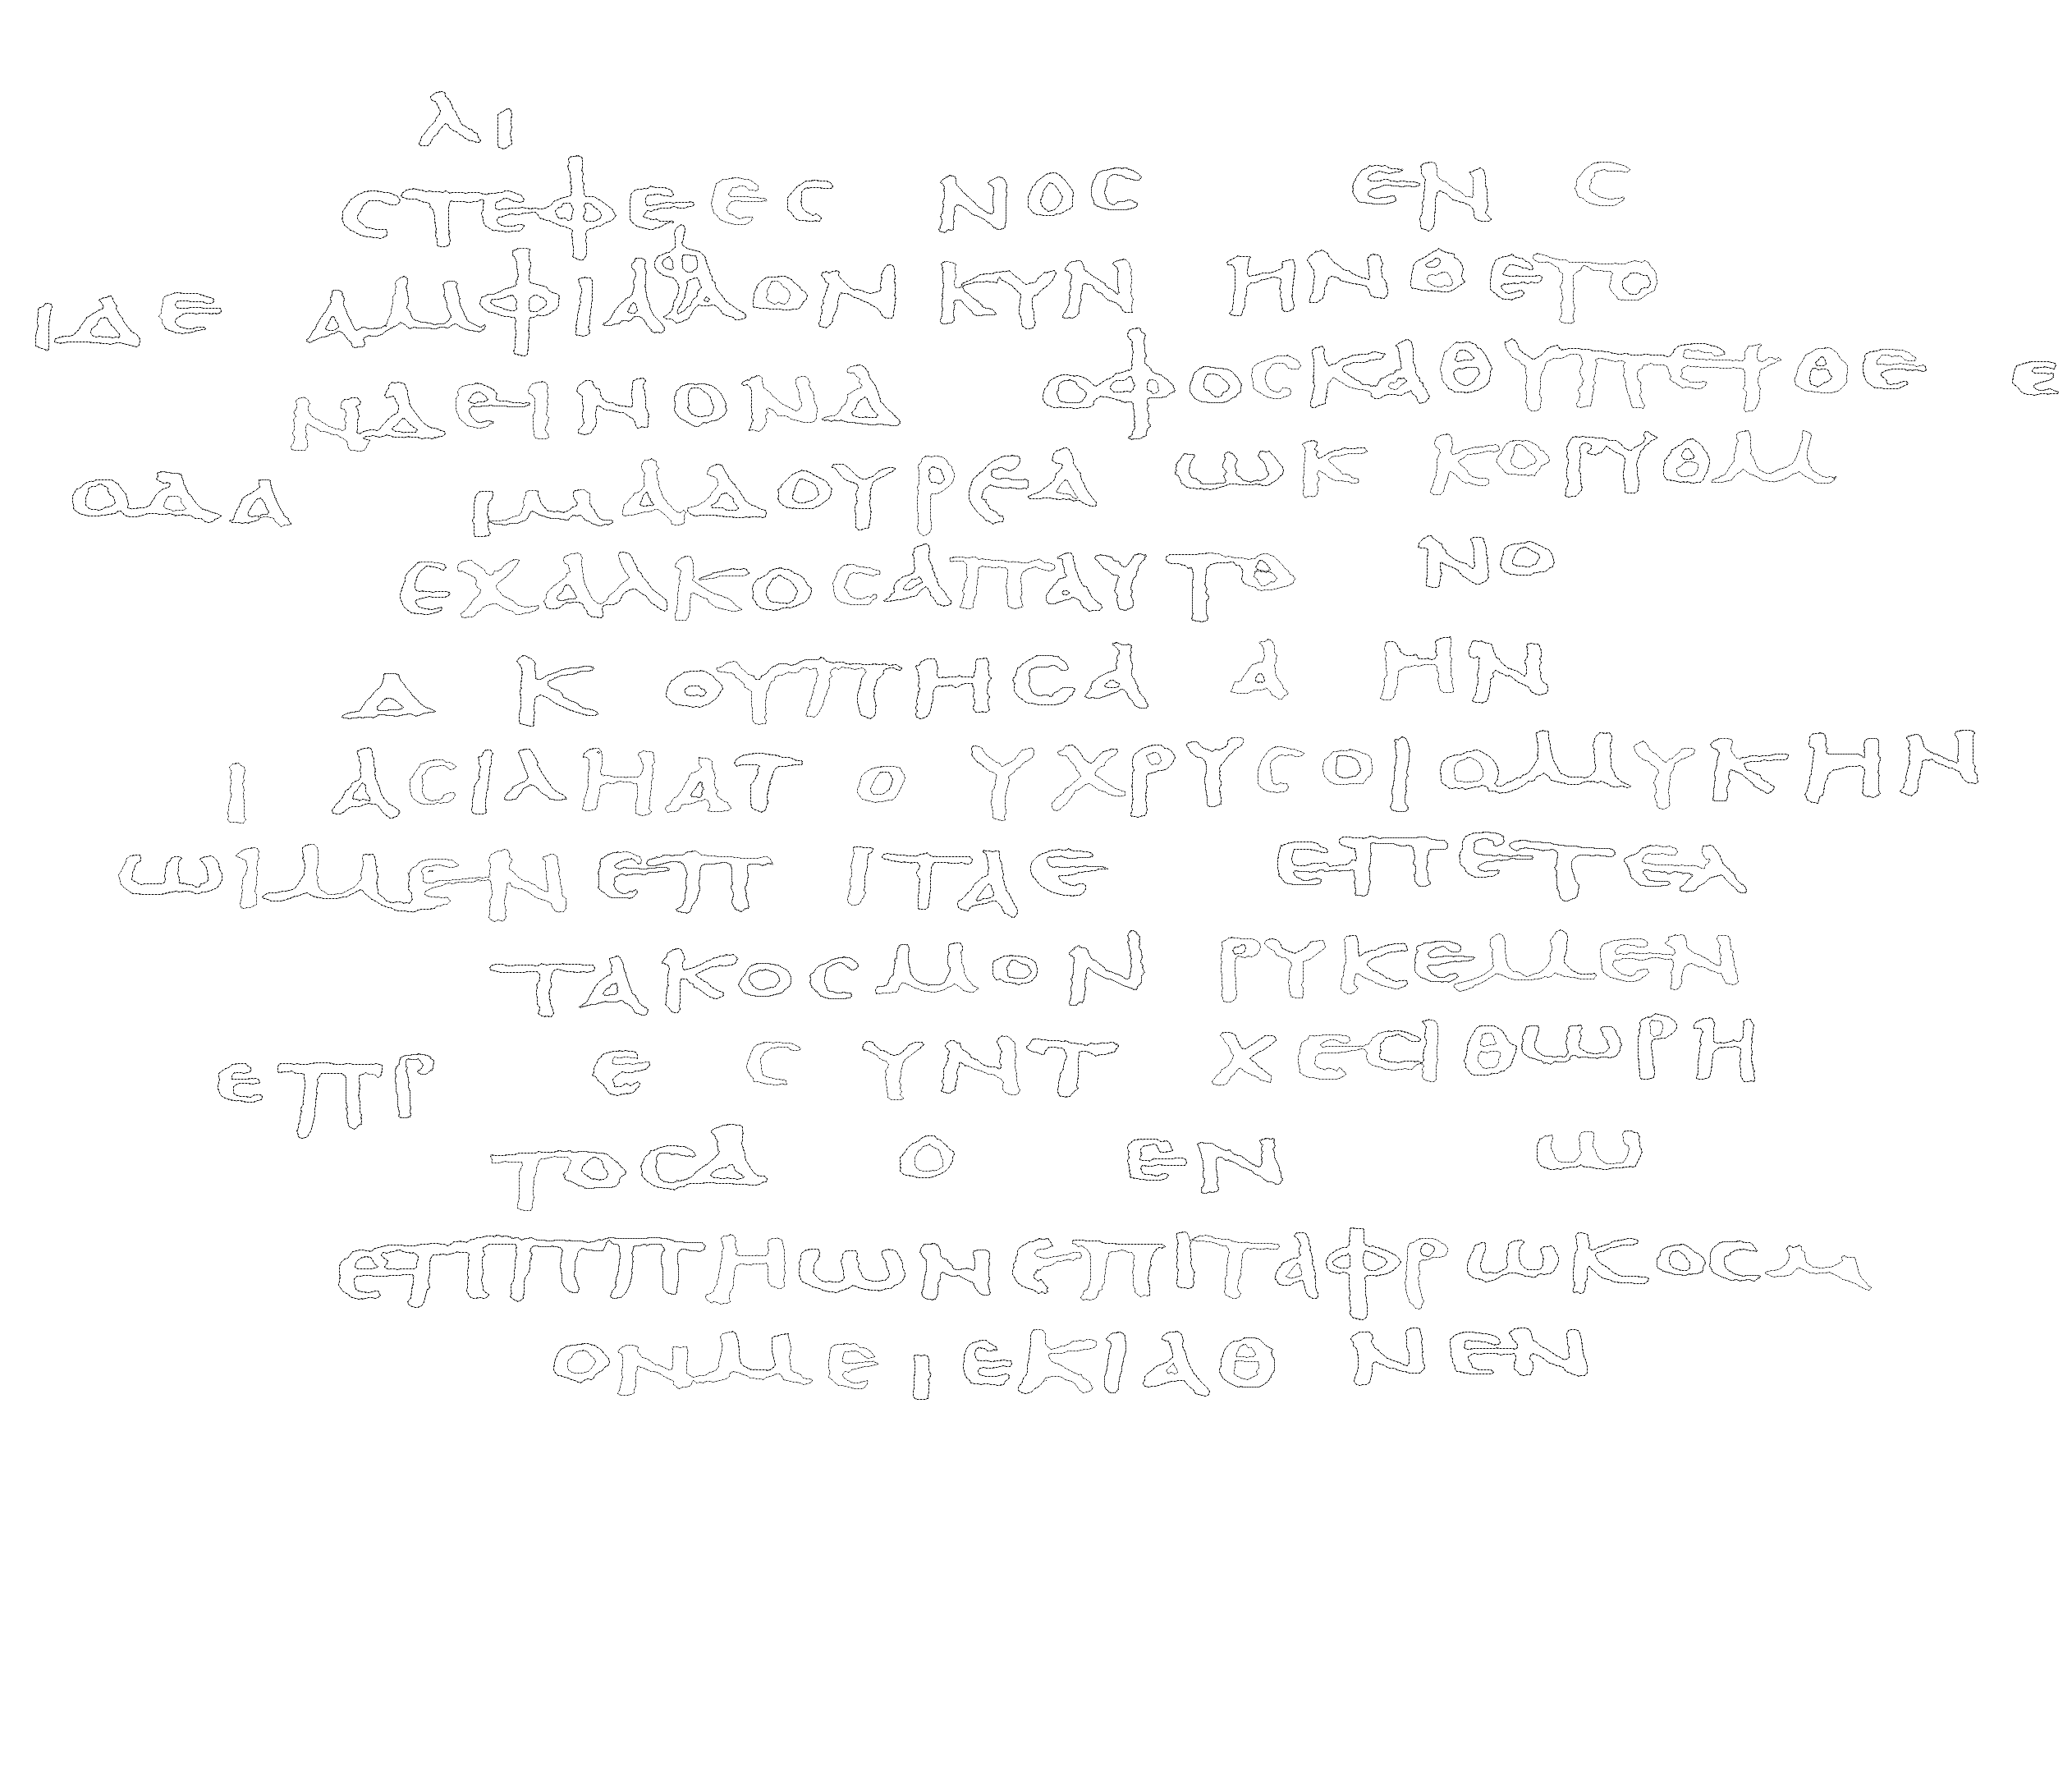 λι
στεφεες νος εν ς
ιδε αμφιλφαον κυν ηνθετο
ναεινονα οφοσκαθυπετθε ε
οαα ιμαδουρεα ωκ κοπυθμ
εχαλκοσαπαυτθ νο
α κ ουπησα α ην
ι ασιληατ ο υχρυσοιομυκην
ωιμενεπ ιταε επετελ
τακοσμον ρυκεμεν
επρ ε ς υντ χεσιθωρη
τοσα ο εν ω
επππηωνεπιταφρωκοσμ
ονμε ιεκιαθ νεν